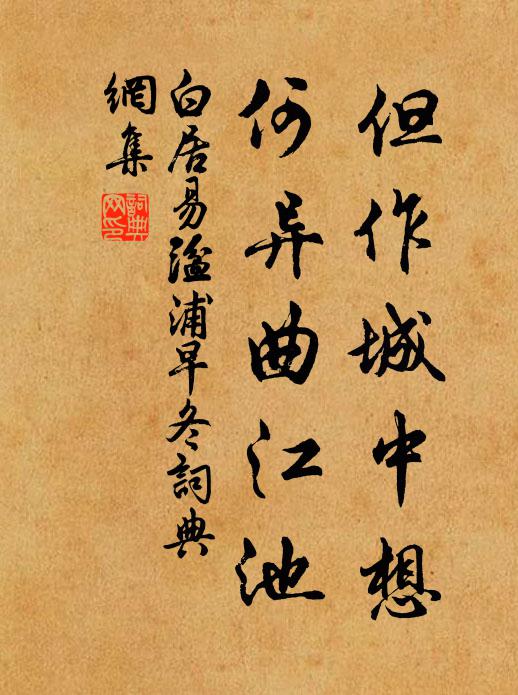 但作城中想
何异曲江池
白居易湓浦早冬詞典
網集
詞典網印